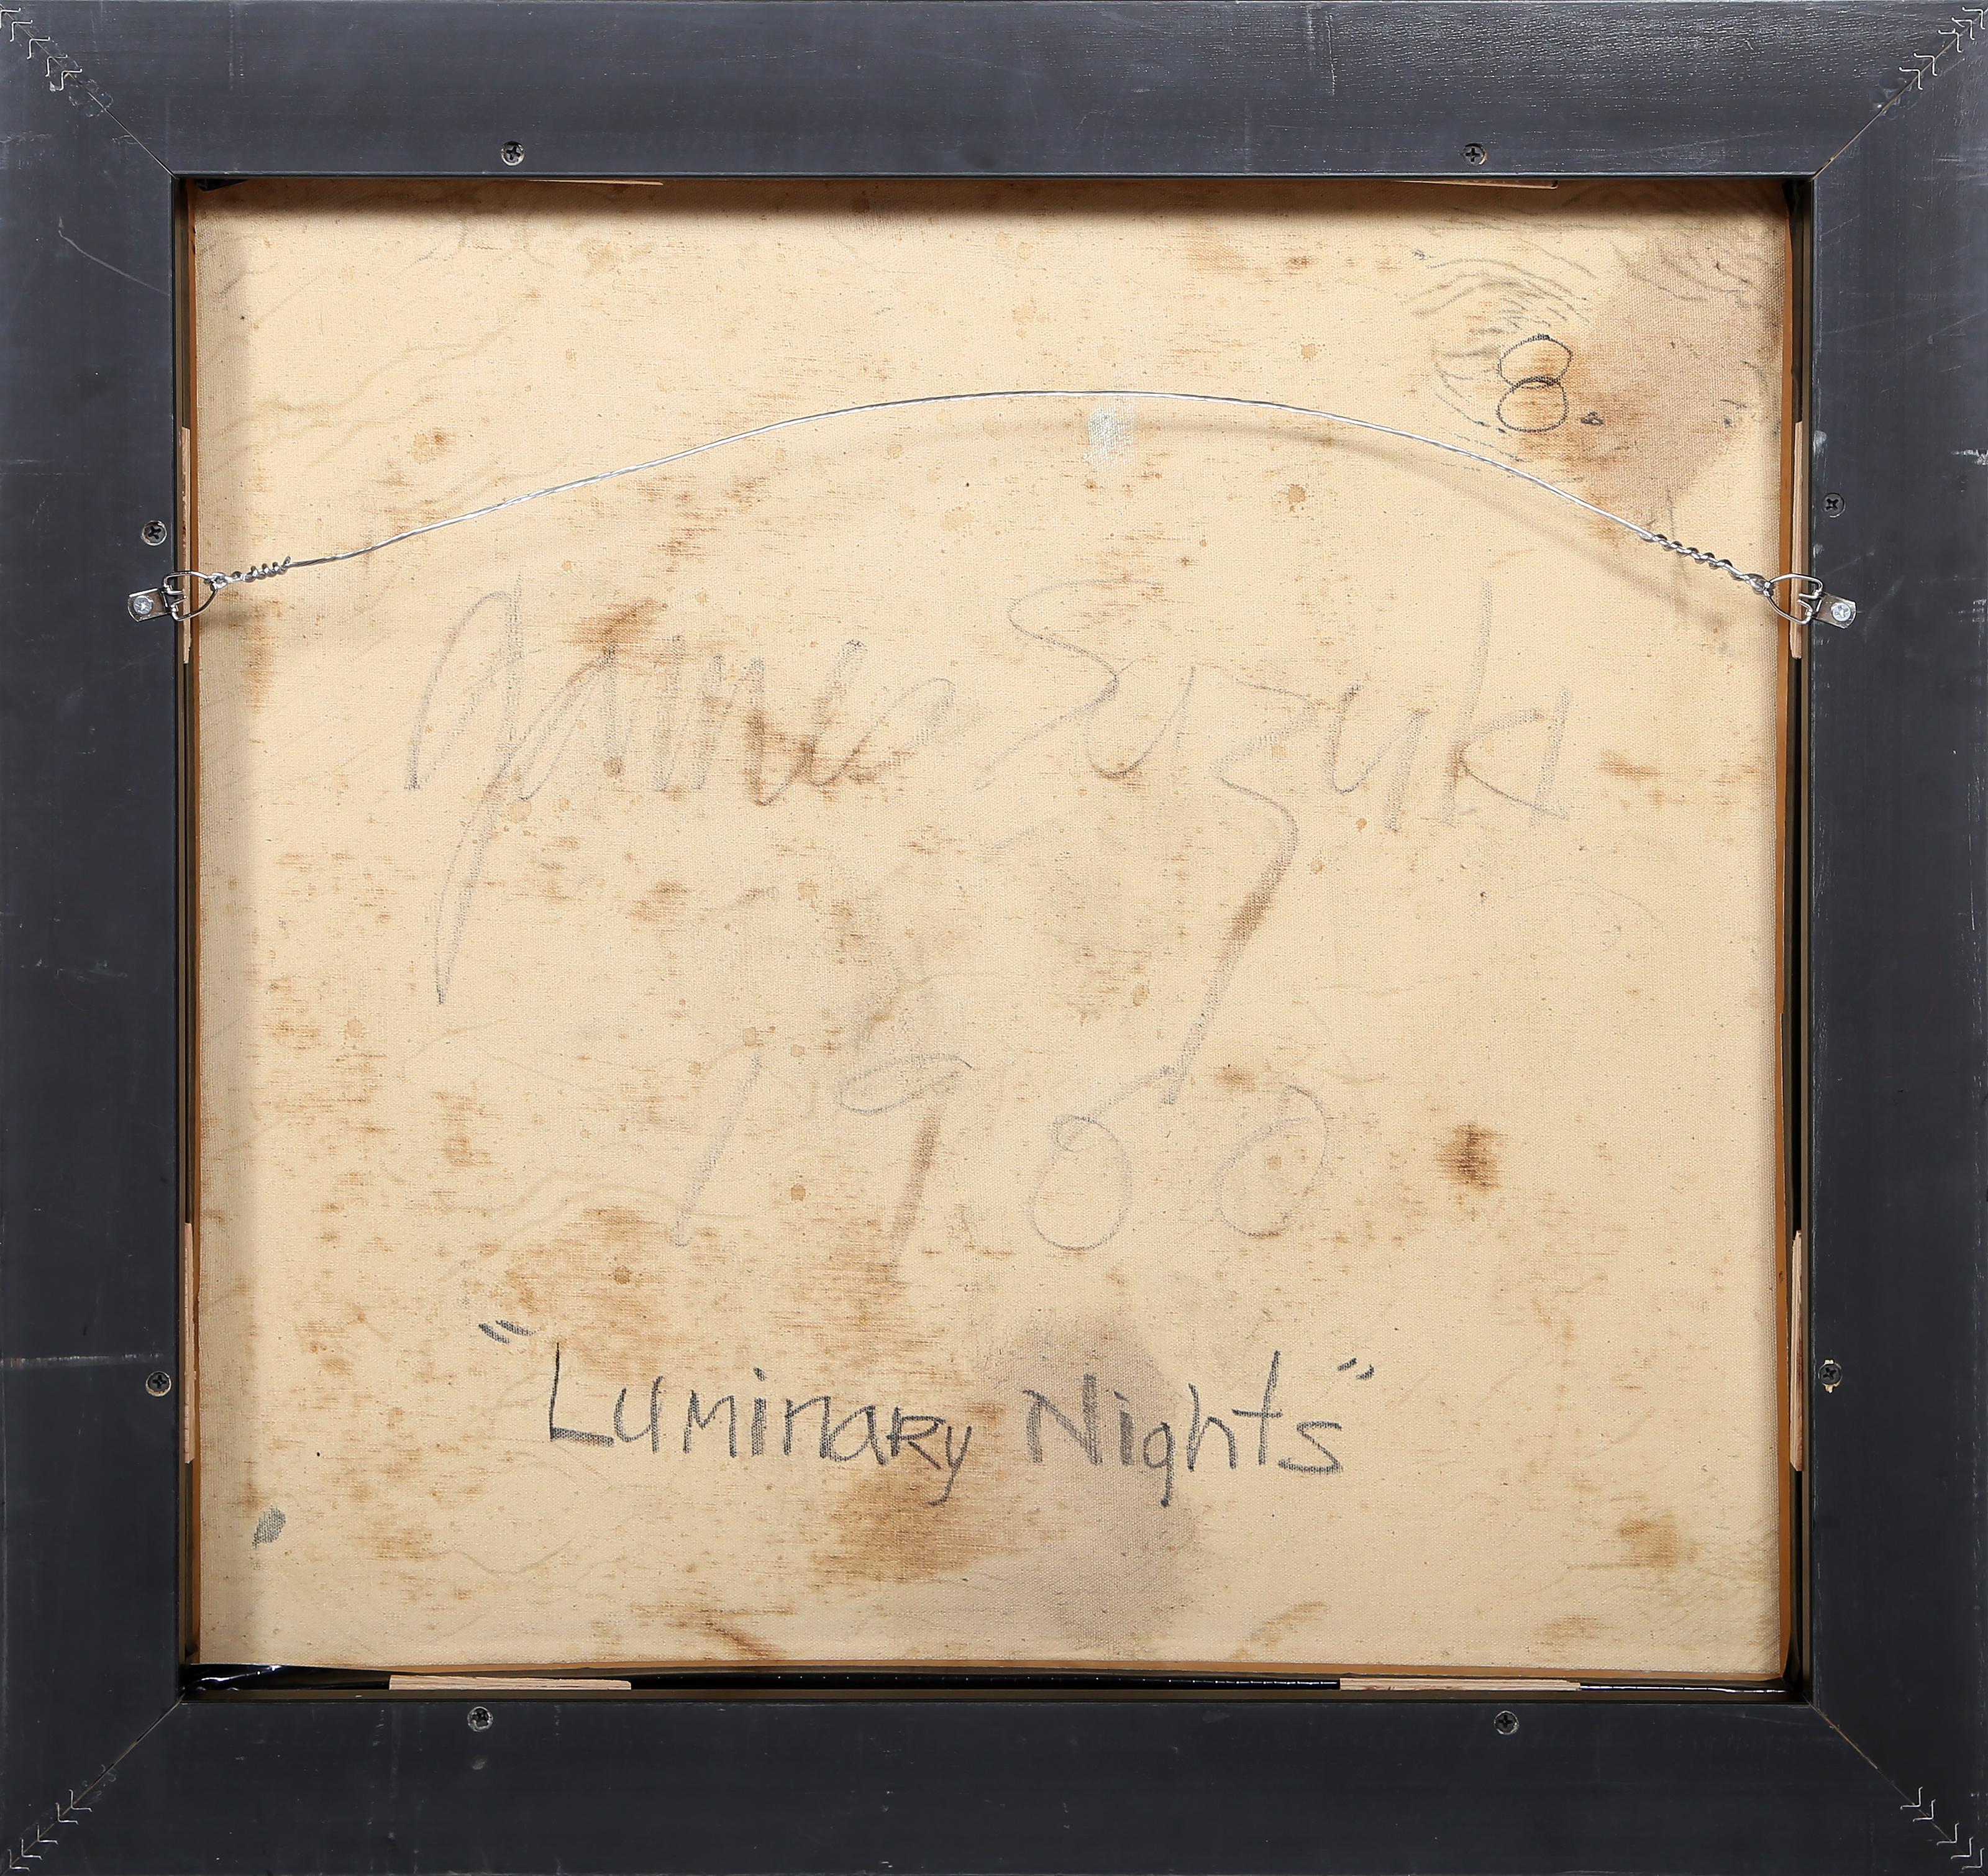 James Suzuki
1960
"Luminary Nights"